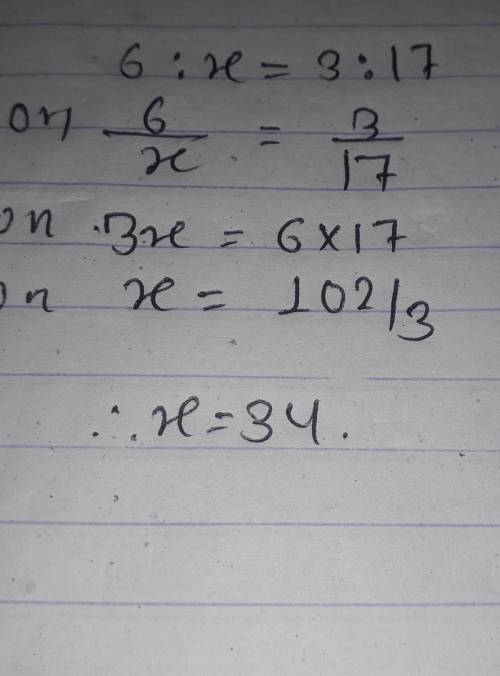 6 : x = 3 : 17
or 6/x = 3/17
or 3x = 6 × 17
or x = 102/3
∴ x = 34.